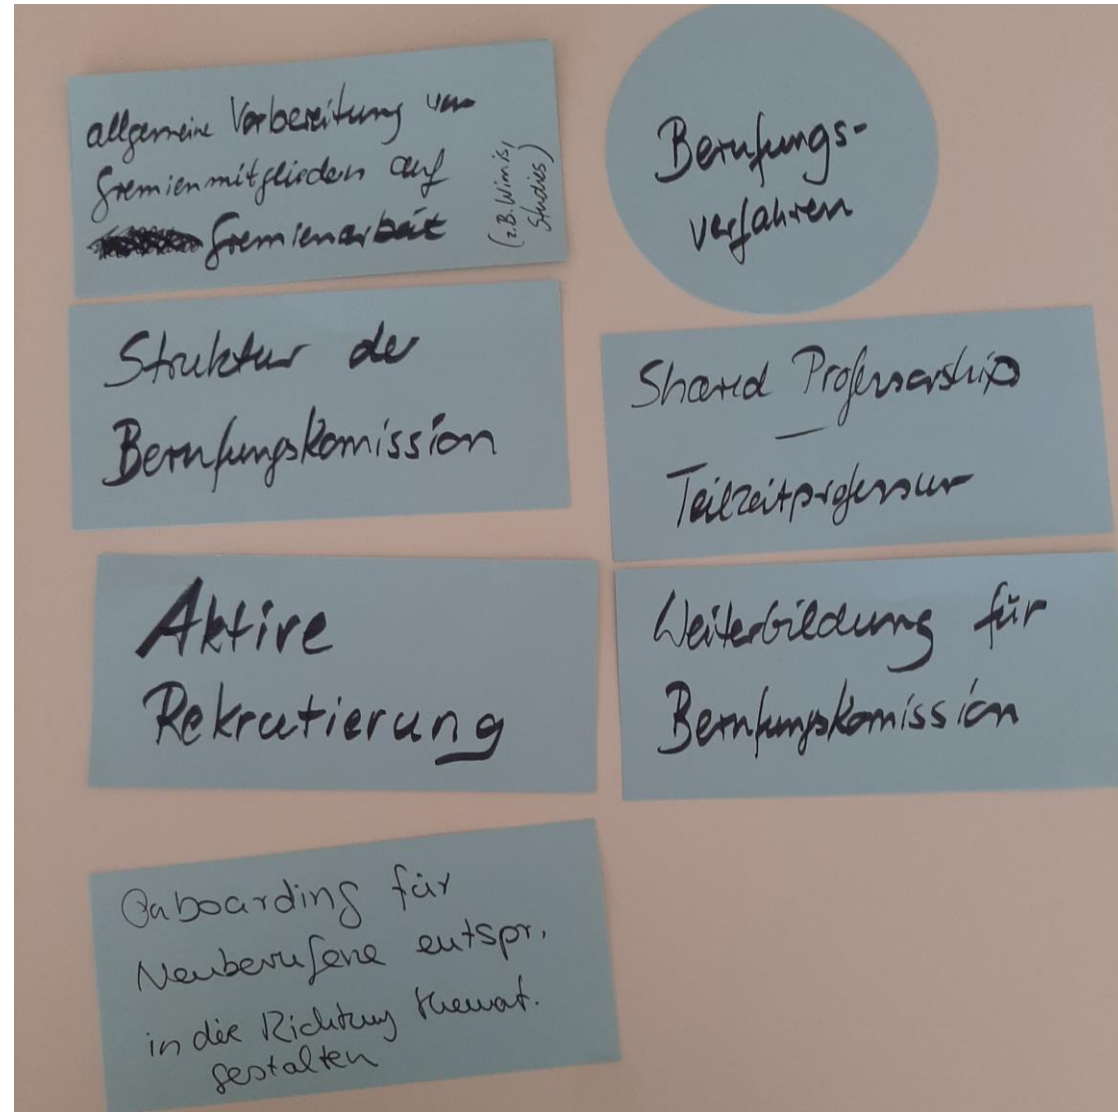 allgemeine Vorbereitung von
Gremienmitgliedern auf
Gremienarbeit
(z.B. Wimis,
Studies)
Berufungs-
verfahren
Struktur der
Berufungskomission
Shared Professorship
—
Teilzeitprofessur
Aktive
Rekrutierung
Weiterbildung für
Berufungskomission
Onboarding für
Neuberufene entspr.
in die Richtung themat.
gestalten